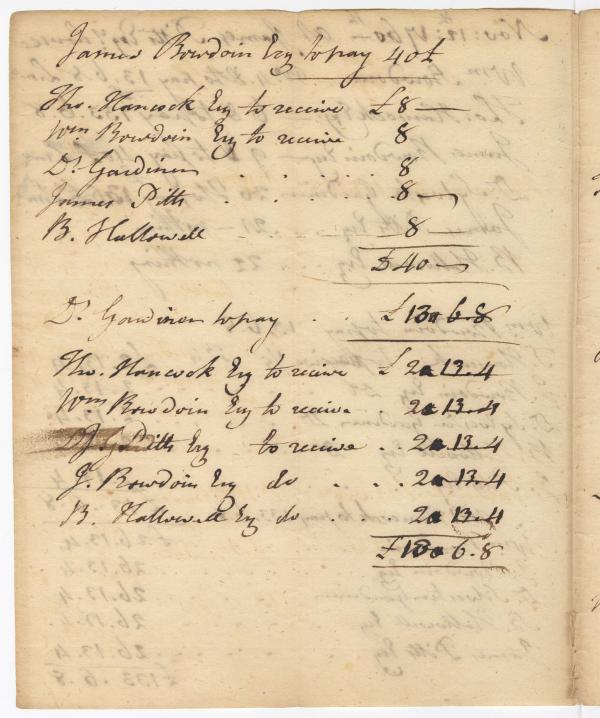 James Bowdoin Esq to pay 40£
Tho. Hancock Esq to receive £8—
Wm Bowdoin Esq to receive 8
Dr Gardiner . . . . . . 8
James Pitts . . . . . . 8—
B. Hallowell . . . 8—
£40—
Dr Gardiner to pay . . £13.6.8
Tho. Hancock Esq to receive £2.13.4
Wm Bowdoin Esq to receive . 2.13.4
J. Pitts Esq to receive . . 2.13.4
J. Bowdoin Esq do . . . . 2.13.4
B. Hallowell Esq do . . . . 2.13.4
£13.6.8